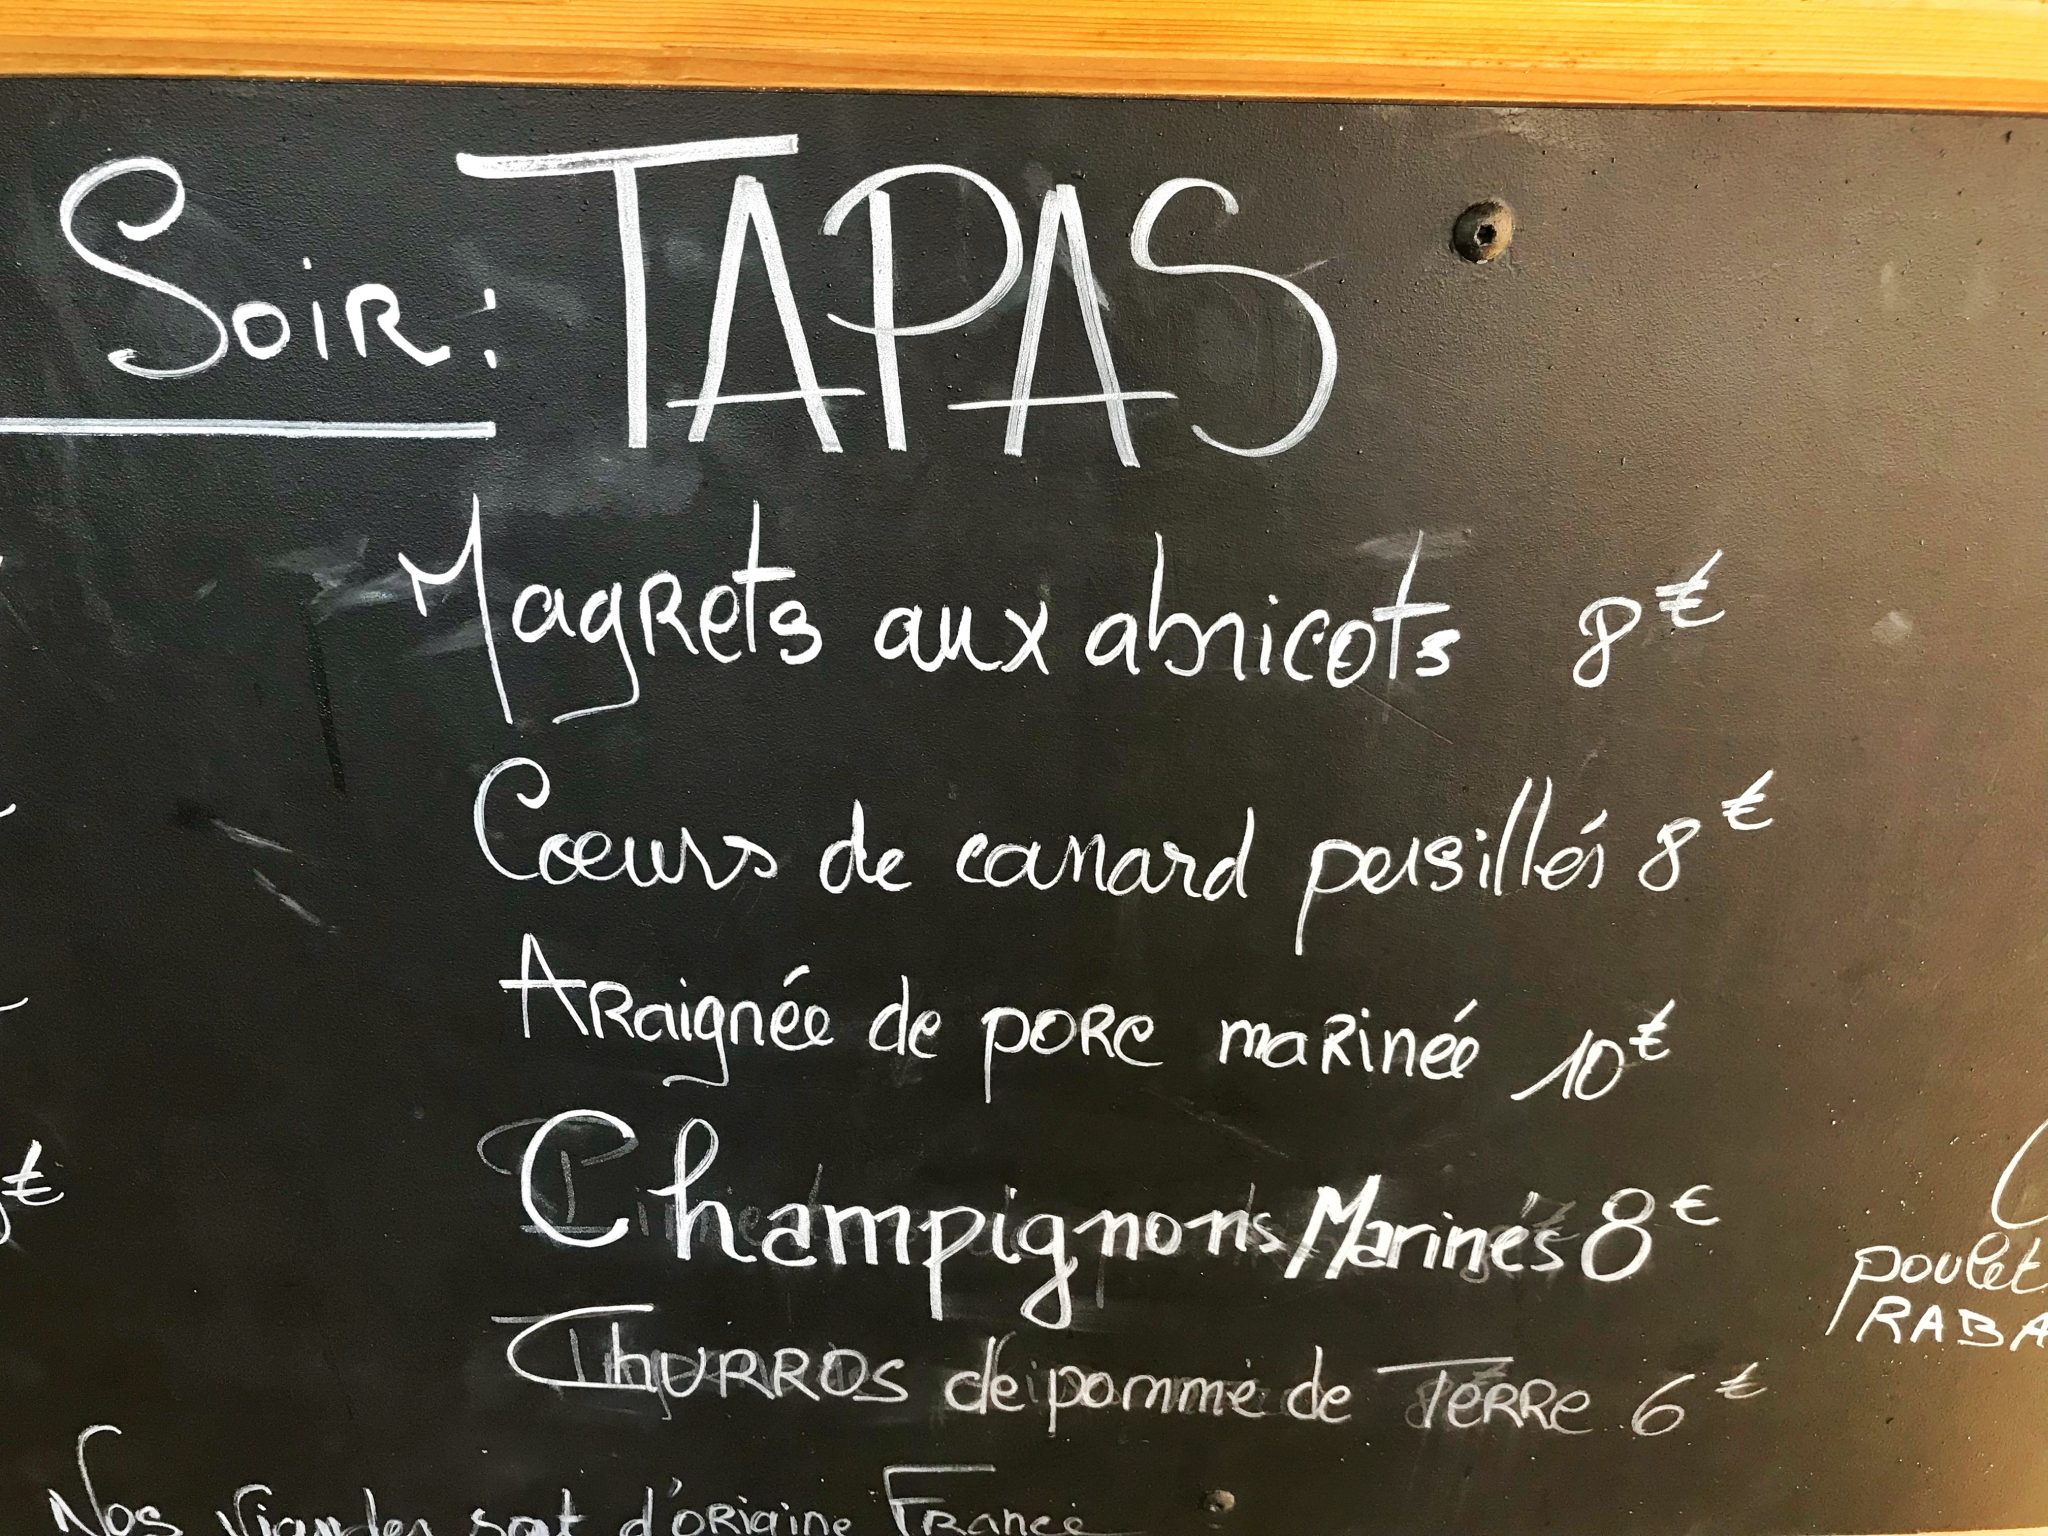 Soir : TAPAS
Magrets aux abricots 8€
Cœurs de canard persillés 8€
Araignée de porc marinée 10€
Champignons Marinés 8€
€
poulet
RABA
Churros de pomme de Terre 6€
Nos viandes sont d'origine France